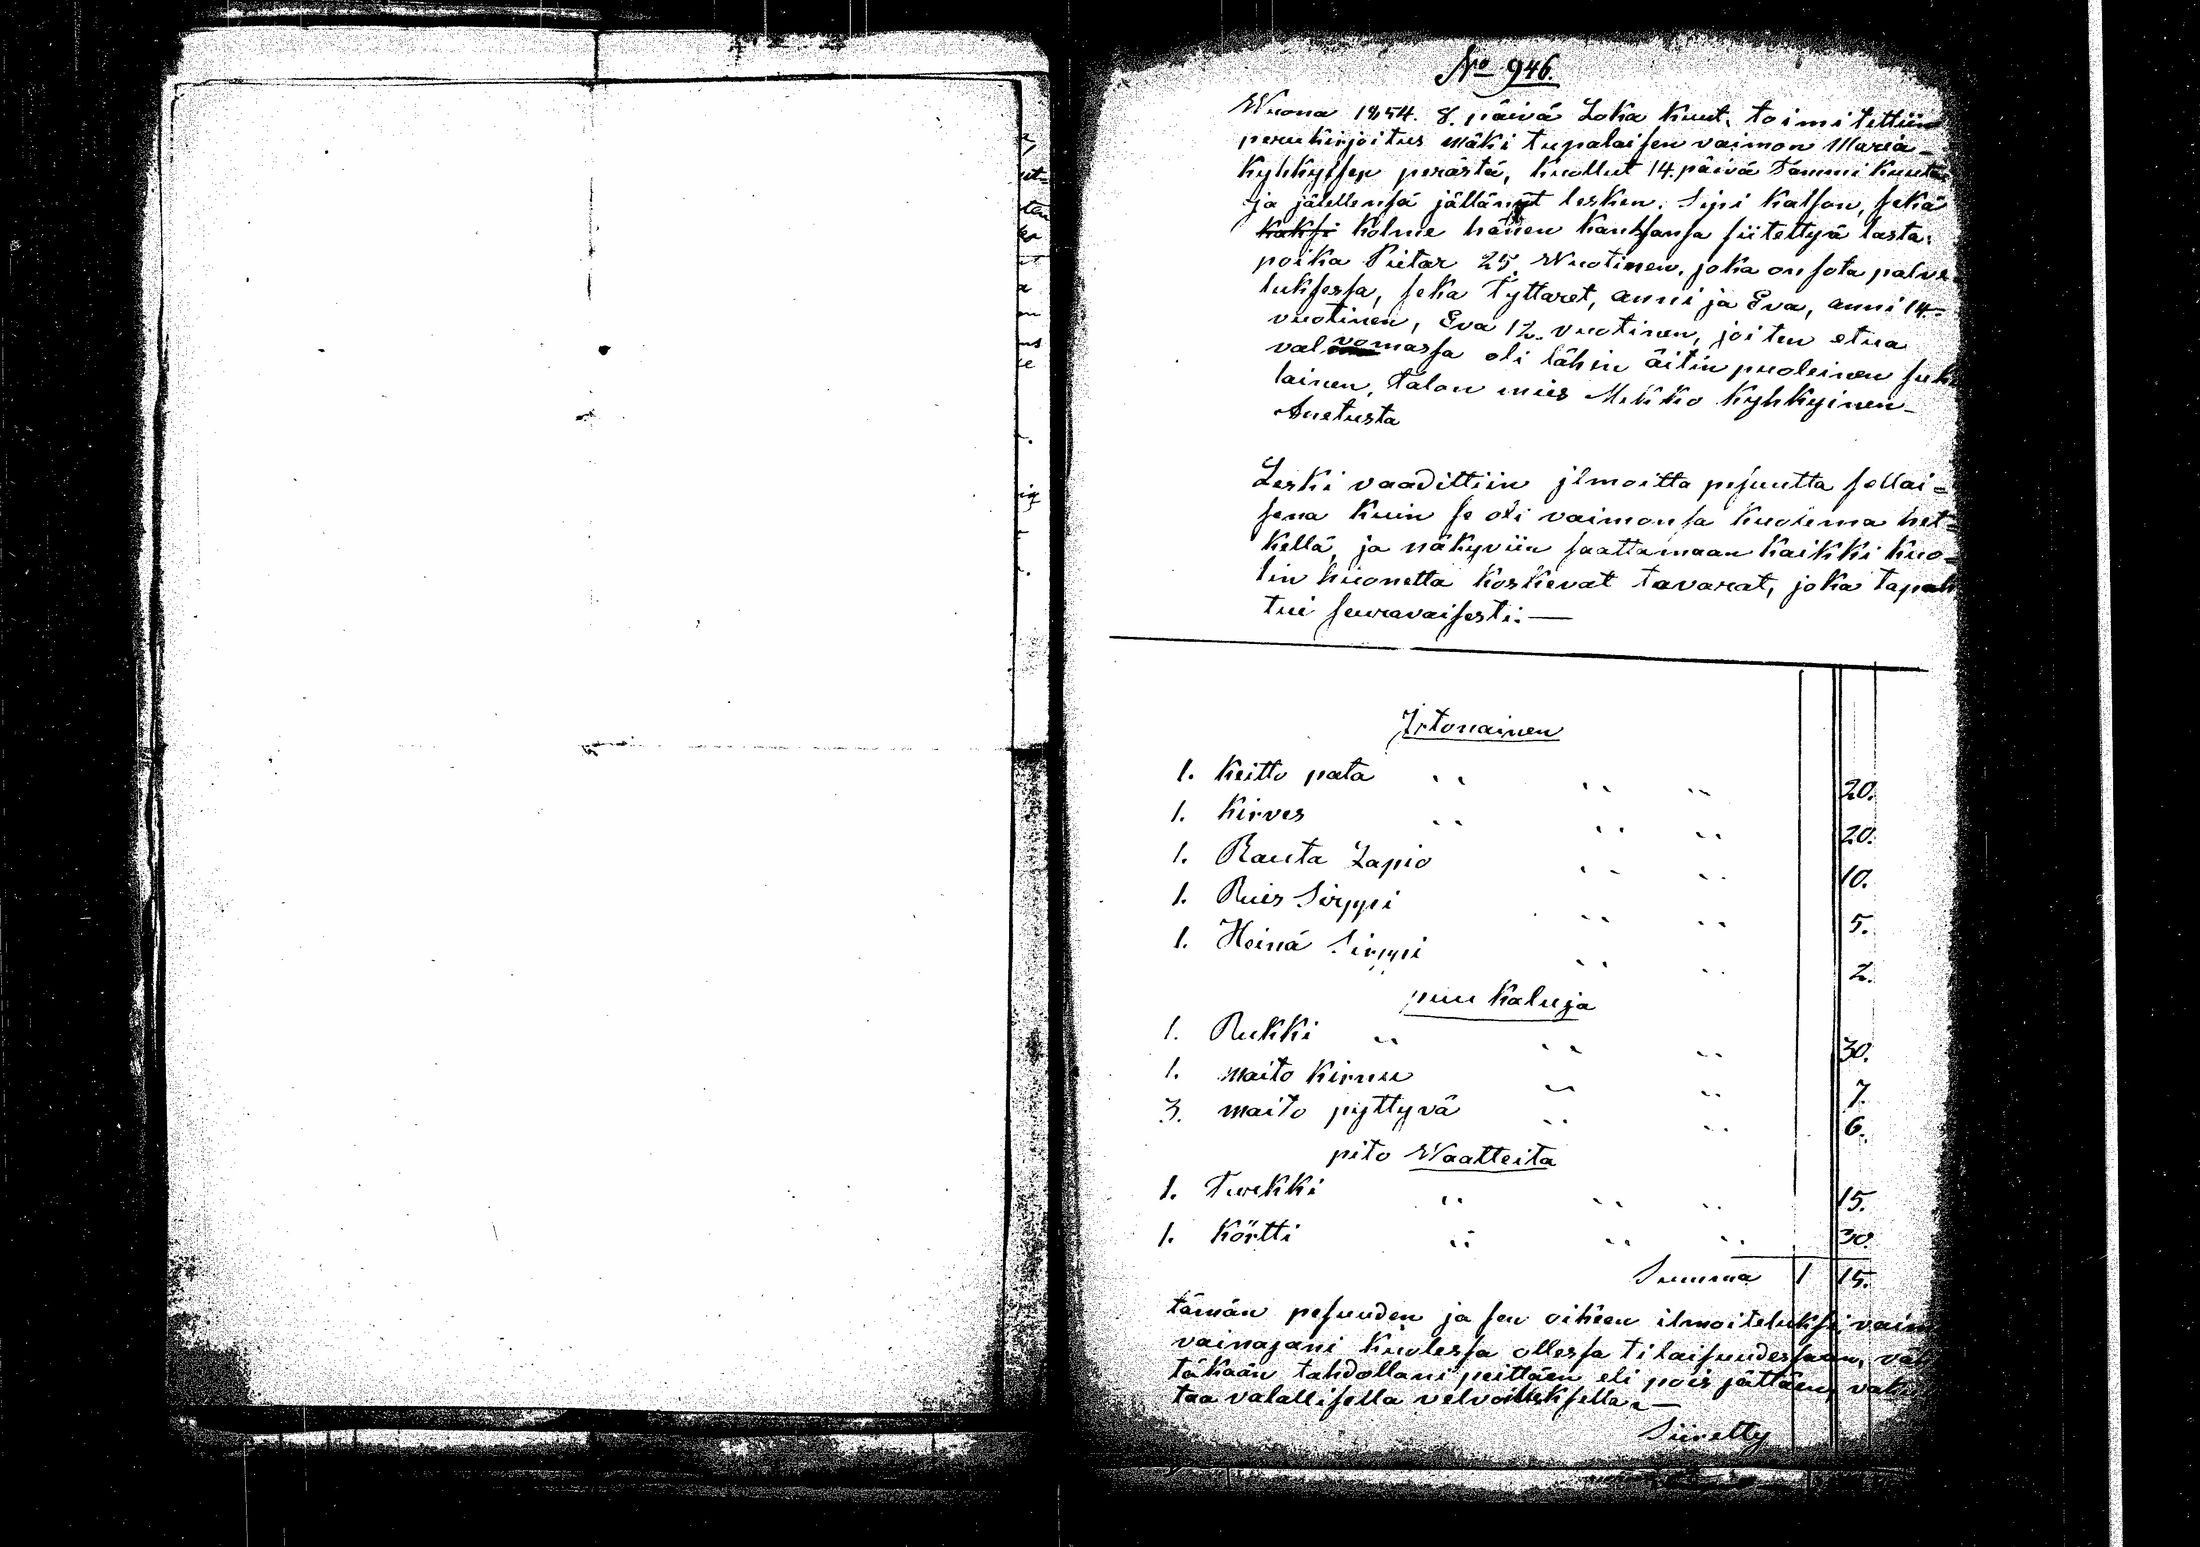 No 946.
Wuona 1854. 8. päivä Loka kuut. toimitettiin
perukirjoitus mäki tupalaisen vaimon Maria
Kyhkysen perästä, kuollut 14. päivä Tammi kuuta
ja jälellensä jättänyt lesken. Sipi Katson, sekä
kaksi kolme hänen kanssansa siitettyä lasta:
poika Pietar 25. Wuotinen, joka on sota palve-
luksessa, seka Tyttaret, anni ja Eva, anni 14-
vuotinen, Eva 12. vuotinen, joiten etua
valvomassa oli lähin äitin puoleinen suku
lainen, talon mies Mikko Kyhkyinen
Suetusta
Leski vaadittiin jlmoitta pesuutta sellai-
sena kuin se oli vaimonsa kuolema het-
kellä, ja näkyviin saattamaan kaikki kuo-
lin huonetta koskevat tavarat, joka tapah
tui seuravaisesti:—
Irtonainen
1. Keitto pata 20.
1. Kirves 20.
1. Rauta Lapio 10.
1. Ruis Sirppi 5.
1. Heinä Sirppi 2.
puu kaluja
1. Rukki 30.
1. maito kirnu 7.
3. maito pyttyvä 6.
pito Waatteita
1. Turkki 15.
1. Körtti 30.
Summa 1 15.
tämän pesuuden ja sen oikeen ilmoiteluksi, vaim
vainajani kuolessa ollessa tilaisuudessaan, väh
täkään tahdollani peittäen eli pois jättäen, vaku
taa valallisella velvoituksella.—
Siiretty